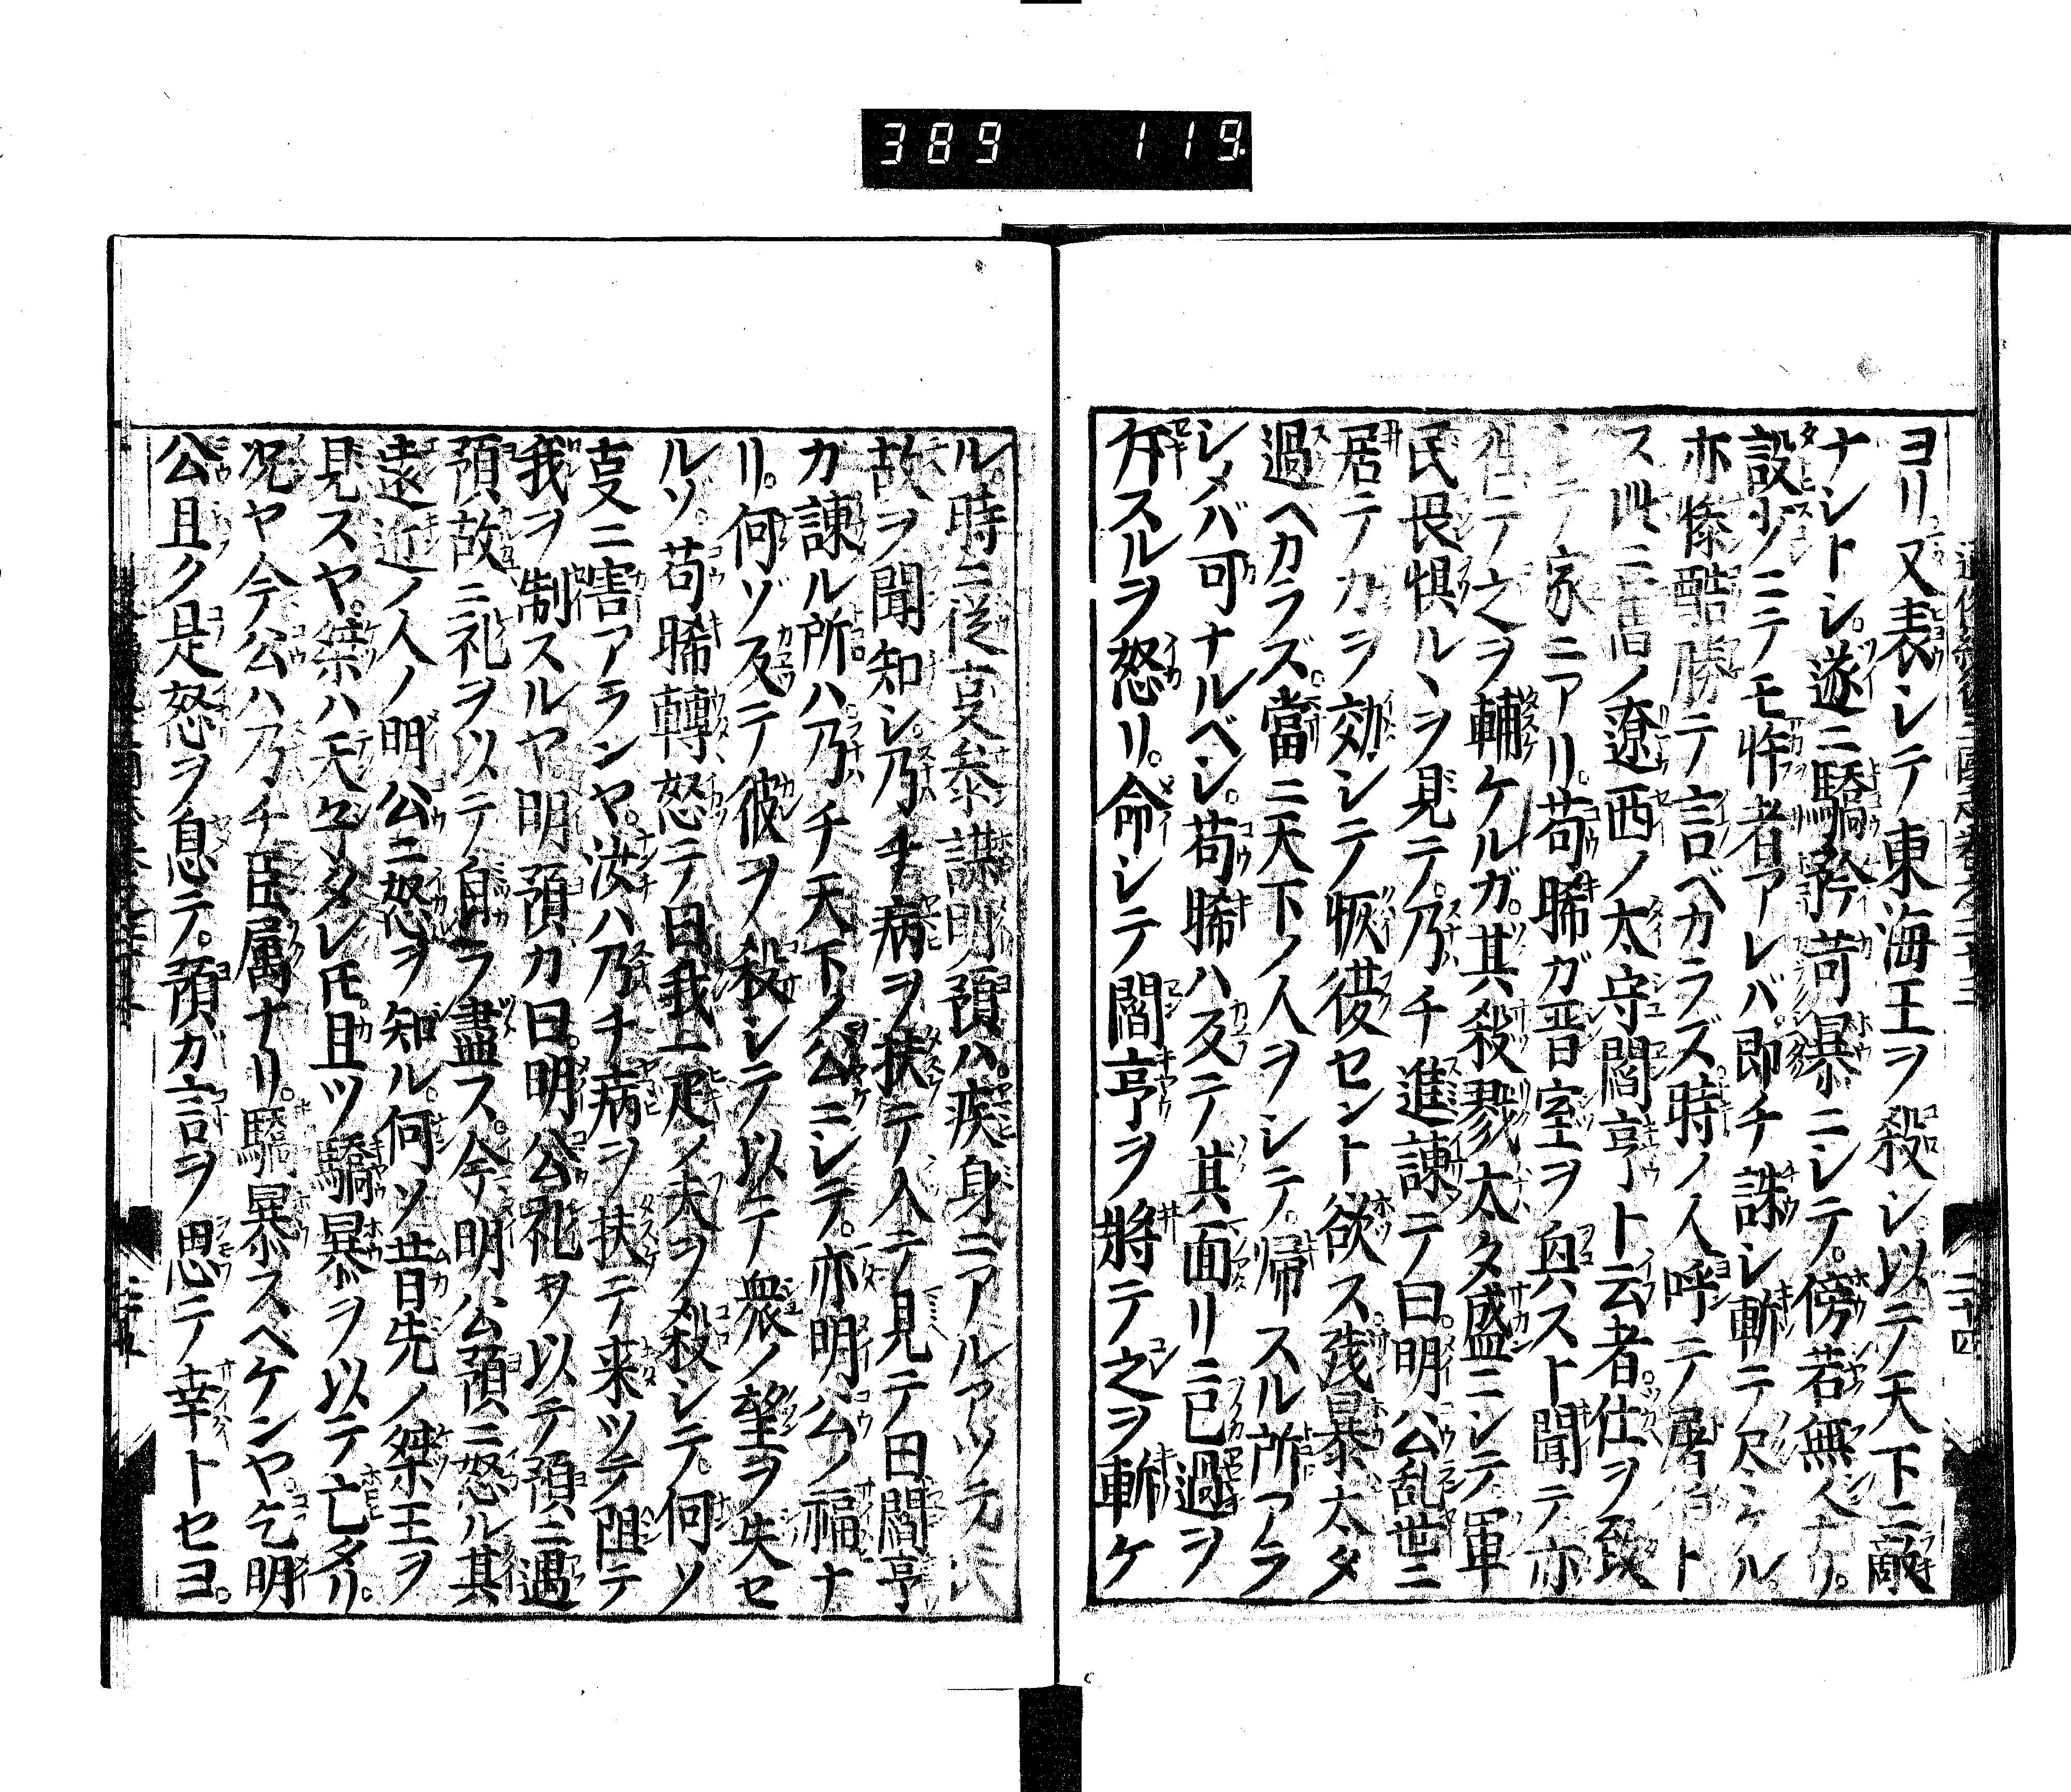 389 119
ヨリ又表シテ東海王ヲ殺シ以テ天下ニ敵
ナシトシ遂ニ驕矜苛暴ニシテ傍若無人ナリ
設少ニテモ忤者アレバ即チ誅シ斬テ尽シケル
亦慘酷勝テ言ベカラズ時ノ人呼テ屠伯ト
ス此ニ舊ノ遼西ノ太守閻亨ト云者仕ヲ致
シテ家ニアリ苟晞ガ晋室ヲ興スト聞テ亦
来テ之ヲ輔ケルガ其殺戮太タ盛ニシテ軍
民畏惧ルヽヲ見テ乃チ進諫テ曰明公乱世ニ
居テ力ヲ効シテ恢復セント欲ス残暴太タ
過ベカラズ當ニ天下ノ人ヲシテ帰スル所アラ
シメバ可ナルベシ苟晞ハ反テ其面リニ已過ヲ
斥スルヲ怒リ命シテ閻亨ヲ將テ之ヲ斬ケ
ル時ニ従叓泰謀明預ハ疾身ニアルアツテ
故ヲ聞知シ乃チ病ヲ扶テ入テ見テ曰閻亨
カ諫ル所ハ乃チ天下ノ公ニシテ亦明公ノ福ナ
リ何ゾ反テ彼ヲ殺シテ以テ衆ノ望ヲ失セ
ルソ苟晞轉怒テ曰我一疋ノ夫ヲ殺シテ何ゾ
叓ニ害アランヤ汝ハ乃チ病ヲ扶テ来ツテ阻テ
我ヲ制スルヤ明預カ曰明公礼ヲ以テ預ニ遇
預故ニ礼ヲ以テ自ラ盡ス今明公預ニ怒ル其
遠近ノ人ノ明公ニ怒ヲ知ル何ソ昔先ノ桀王ヲ
見ズヤ桀ハ天子タレ𪜈且ツ驕暴ヲ以テ亡タリ
况ヤ今公ハ乃チ臣属ナリ驕暴スベケンヤ乞明
公且ク是怒ヲ息テ預ガ言ヲ思テ幸トセヨ